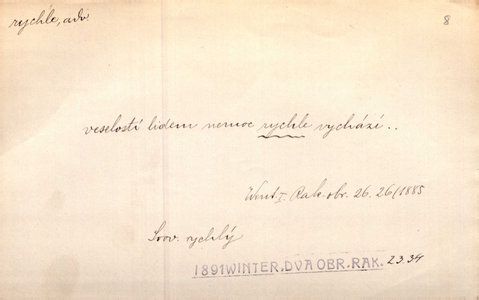 rychle, adv.
8
veselostí lidem nemoc rychle vychází..
Wint. I. Rak. obr. 26. 26/1885
Srov. rychlý
1891 WINTER, DVA OBR. RAK. 23.34